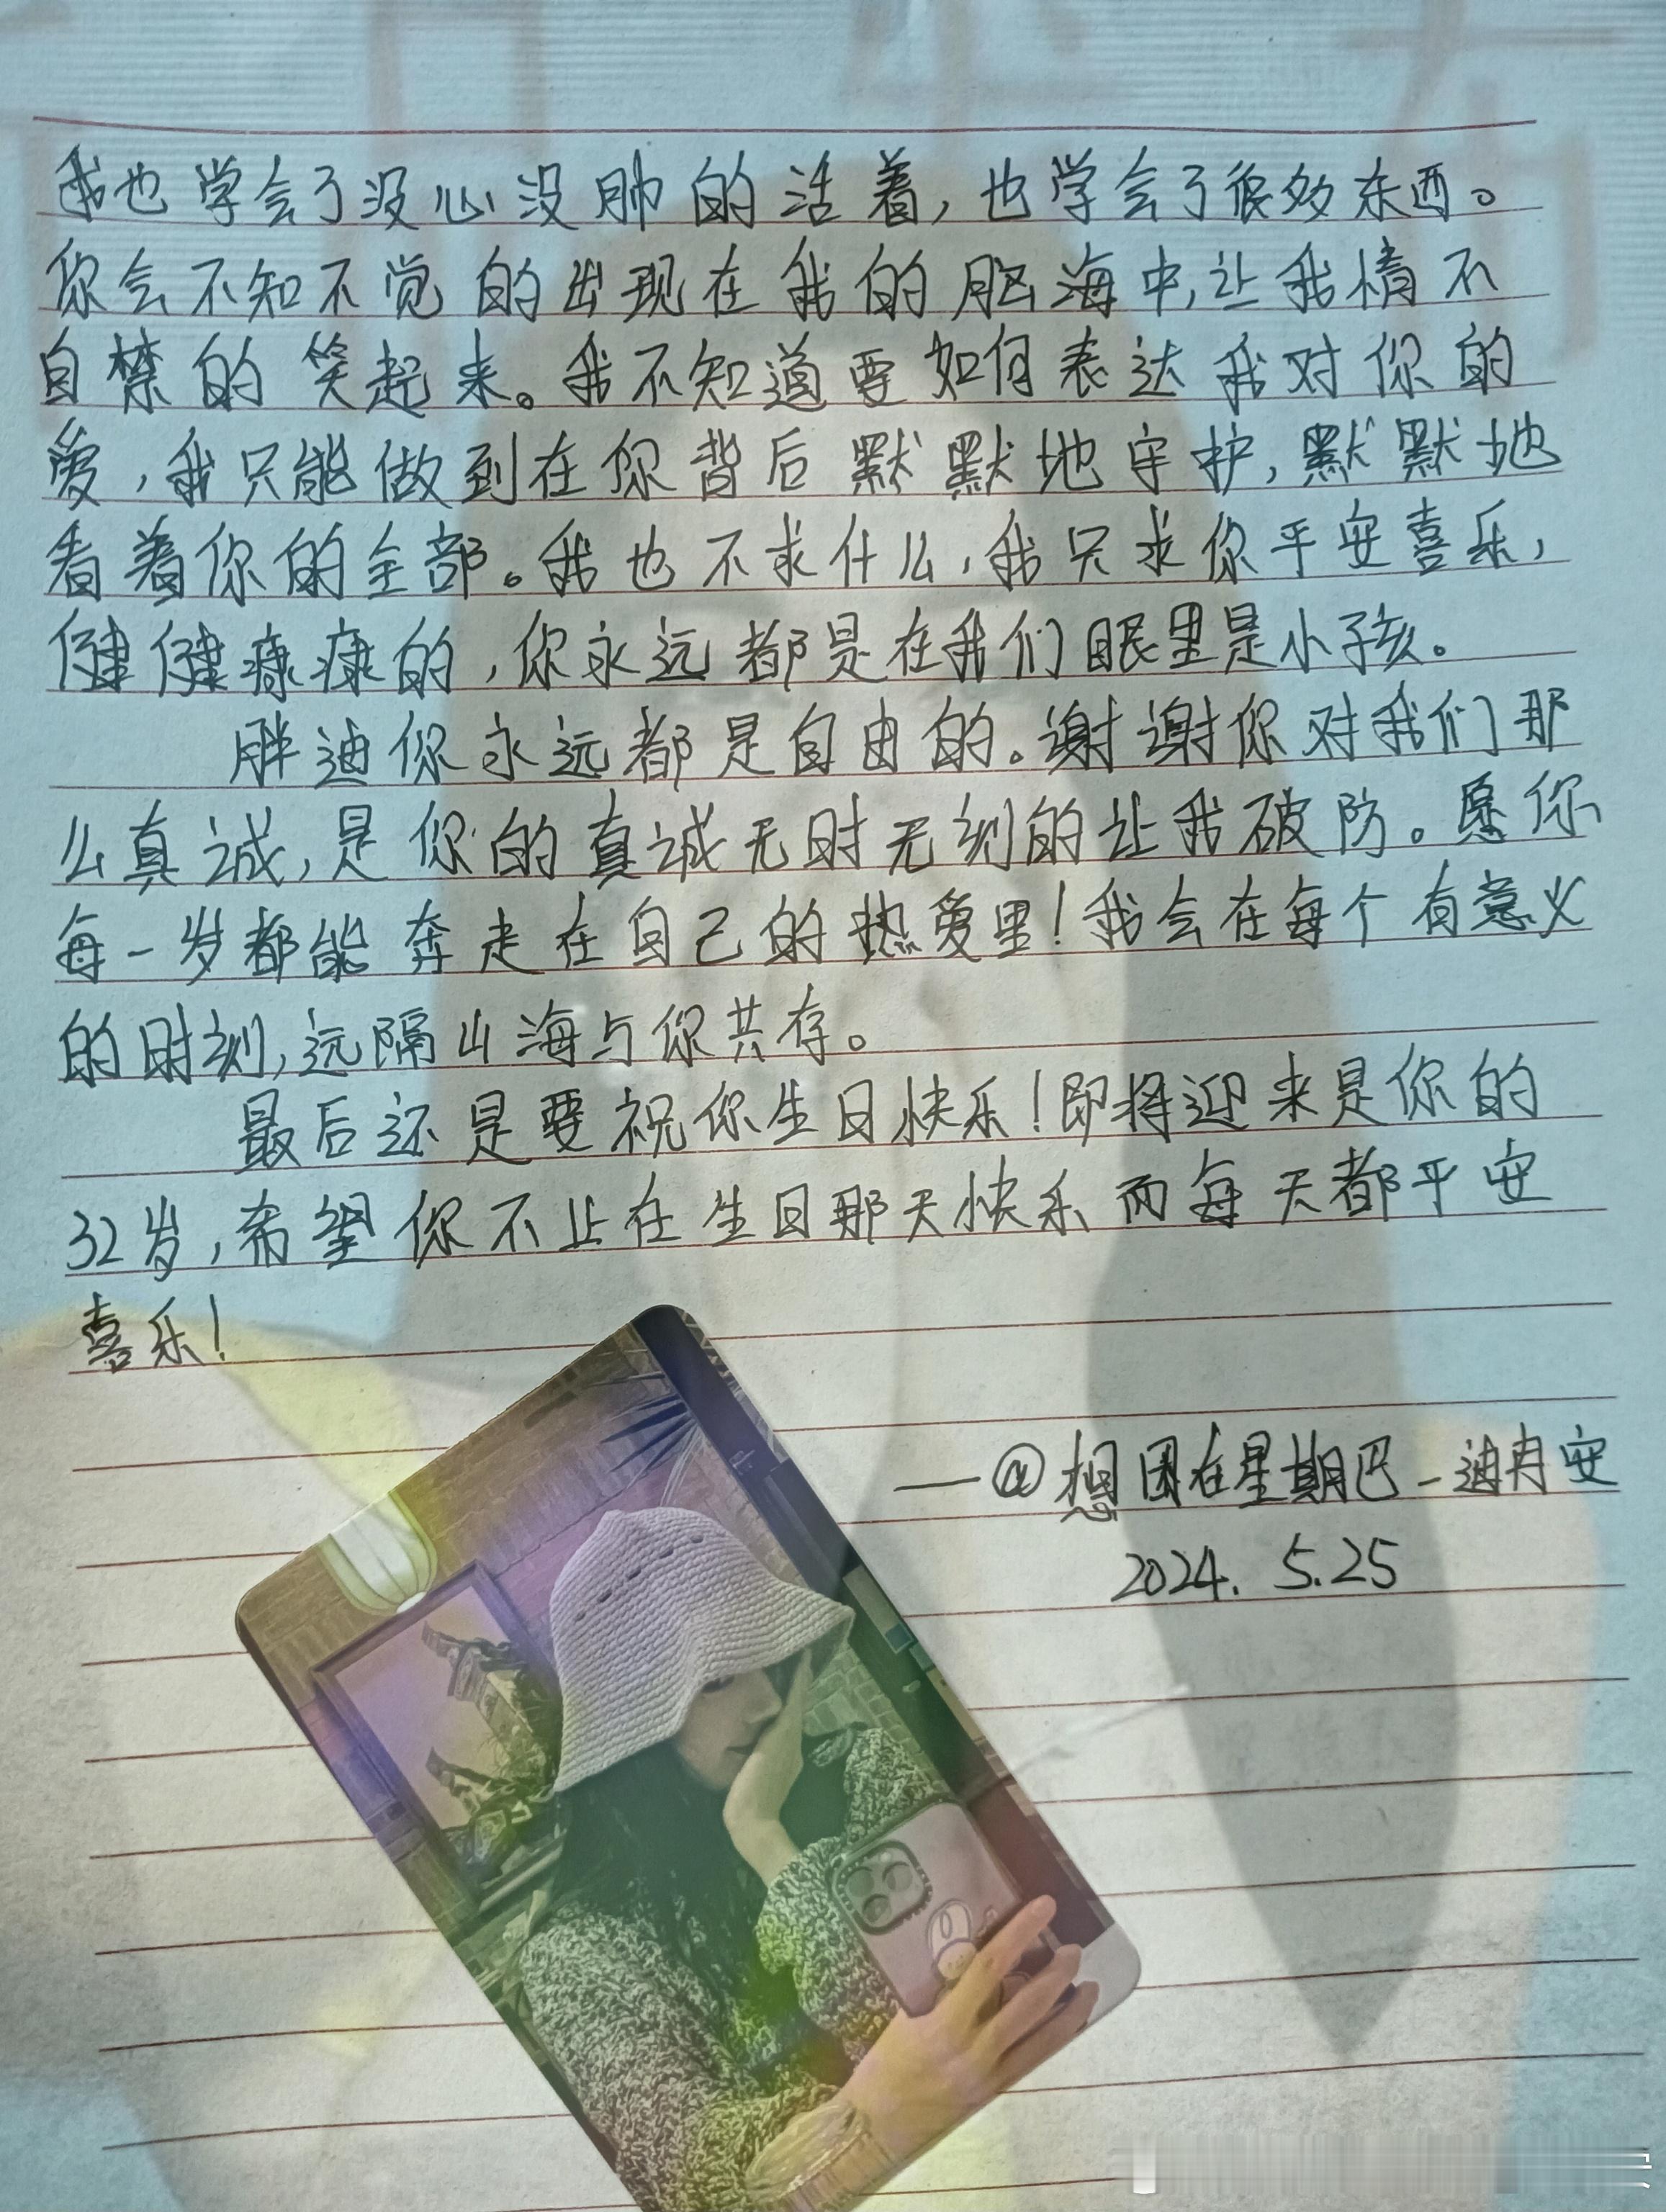 我也学会了没心没肺的活着,也学会了很多东西。
你会不知不觉的出现在我的脑海中,让我情不
自禁的笑起来。我不知道要如何表达我对你的
爱,我只能做到在你背后默默地守护,默默地
看着你的全部。我也不求什么,我只求你平安喜乐,
健健康康的,你永远都是在我们眼里是小孩。
胖迪你永远都是自由的。谢谢你对我们那
么真诚,是你的真诚无时无刻的让我破防。愿你
每一岁都能奔走在自己的热爱里!我会在每个有意义
的时刻,远隔山海与你共存。
最后还是要祝你生日快乐!即将迎来是你的
32岁,希望你不止在生日那天快乐而每天都平安
喜乐!
—@想困在星期巴_迪冉安
2024.5.25